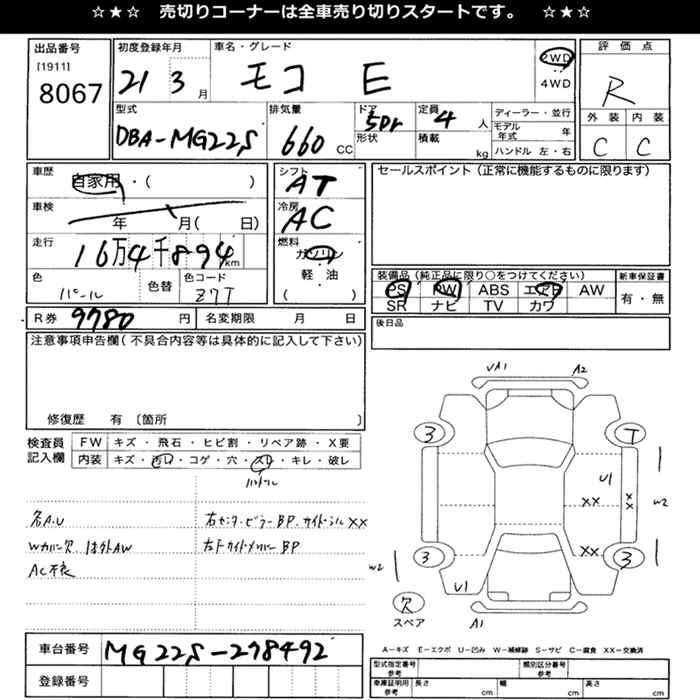 ☆★☆ 売切りコーナーは全車売り切りスタートです。 ☆★☆
出品番号
[1911]
8067
初度登録年月
21 3 月
車名・グレード
モコ E
2WD
4WD
評価点
R
外装 内装
C C
型式
DBA-MG22S
排気量
660 CC
ドア
5Dr
形状
定員
4 人
積載
kg
ディーラー・並行
モデル年式 年
ハンドル 左・右
車歴
自家用・( )
車検
年 月( 日)
走行
16万4千894 km
色
パール
色替
色コード
Z7T
シフト
AT
冷房
AC
燃料
ガソリン
軽・油
( )
セールスポイント(正常に機能するものに限ります)
装備品(純正品に限り○をつけてください)
PS PW ABS エアB AW
SR ナビ TV カワ
新車保証書
有・無
R券 9780 円
名変期限 月 日
後日品
注意事項申告欄(不具合内容等は具体的に記入して下さい)
修復歴 有 〔箇所 〕
検査員
記入欄
FW キズ・飛石・ヒビ割・リペア跡・X要
内装 キズ・汚れ・コゲ・穴・スレ・キレ・破レ
ハンドル
各A.U
Wカバー欠.社外AW
AC不良
右センターピラーBP.サイドシルXX
右F サイドメンバーBP
UA1 A2
3 T
U1
XX
XX
W2
XX
3 3
W2
U1
欠
スペア
A1
A-キズ E-エクボ U-凹み W-補修跡 S-サビ C-腐食 XX-交換済
車台番号
MG22S-278492
登録番号
型式指定番号
参考
類別区分番号
参考
車庫証明用
参考
長さ cm
幅 cm
高さ cm